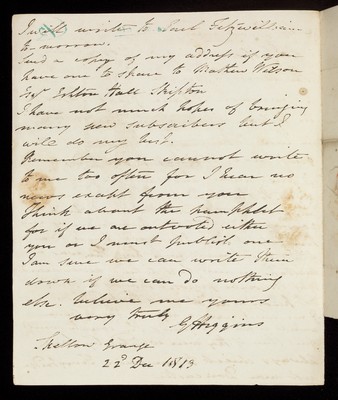 I will write to Earl Fitzwilliam
to-morrow.
Send a copy of my address if you
have one to spare to Mathew Wilson
Esqr Eshton Hall Skipton
I have not much hopes of bringing
many new subscribers but I
will do my best.
Remember you cannot write
to me too often for I hear no
news except from you
Think about the pamphlet
for if we are outvoted either
you or I must publish one
I am sure we can write them
down if we can do nothing
else. believe me yours
very truly
G Higgins
Skellow Grange
22d Dec 1813